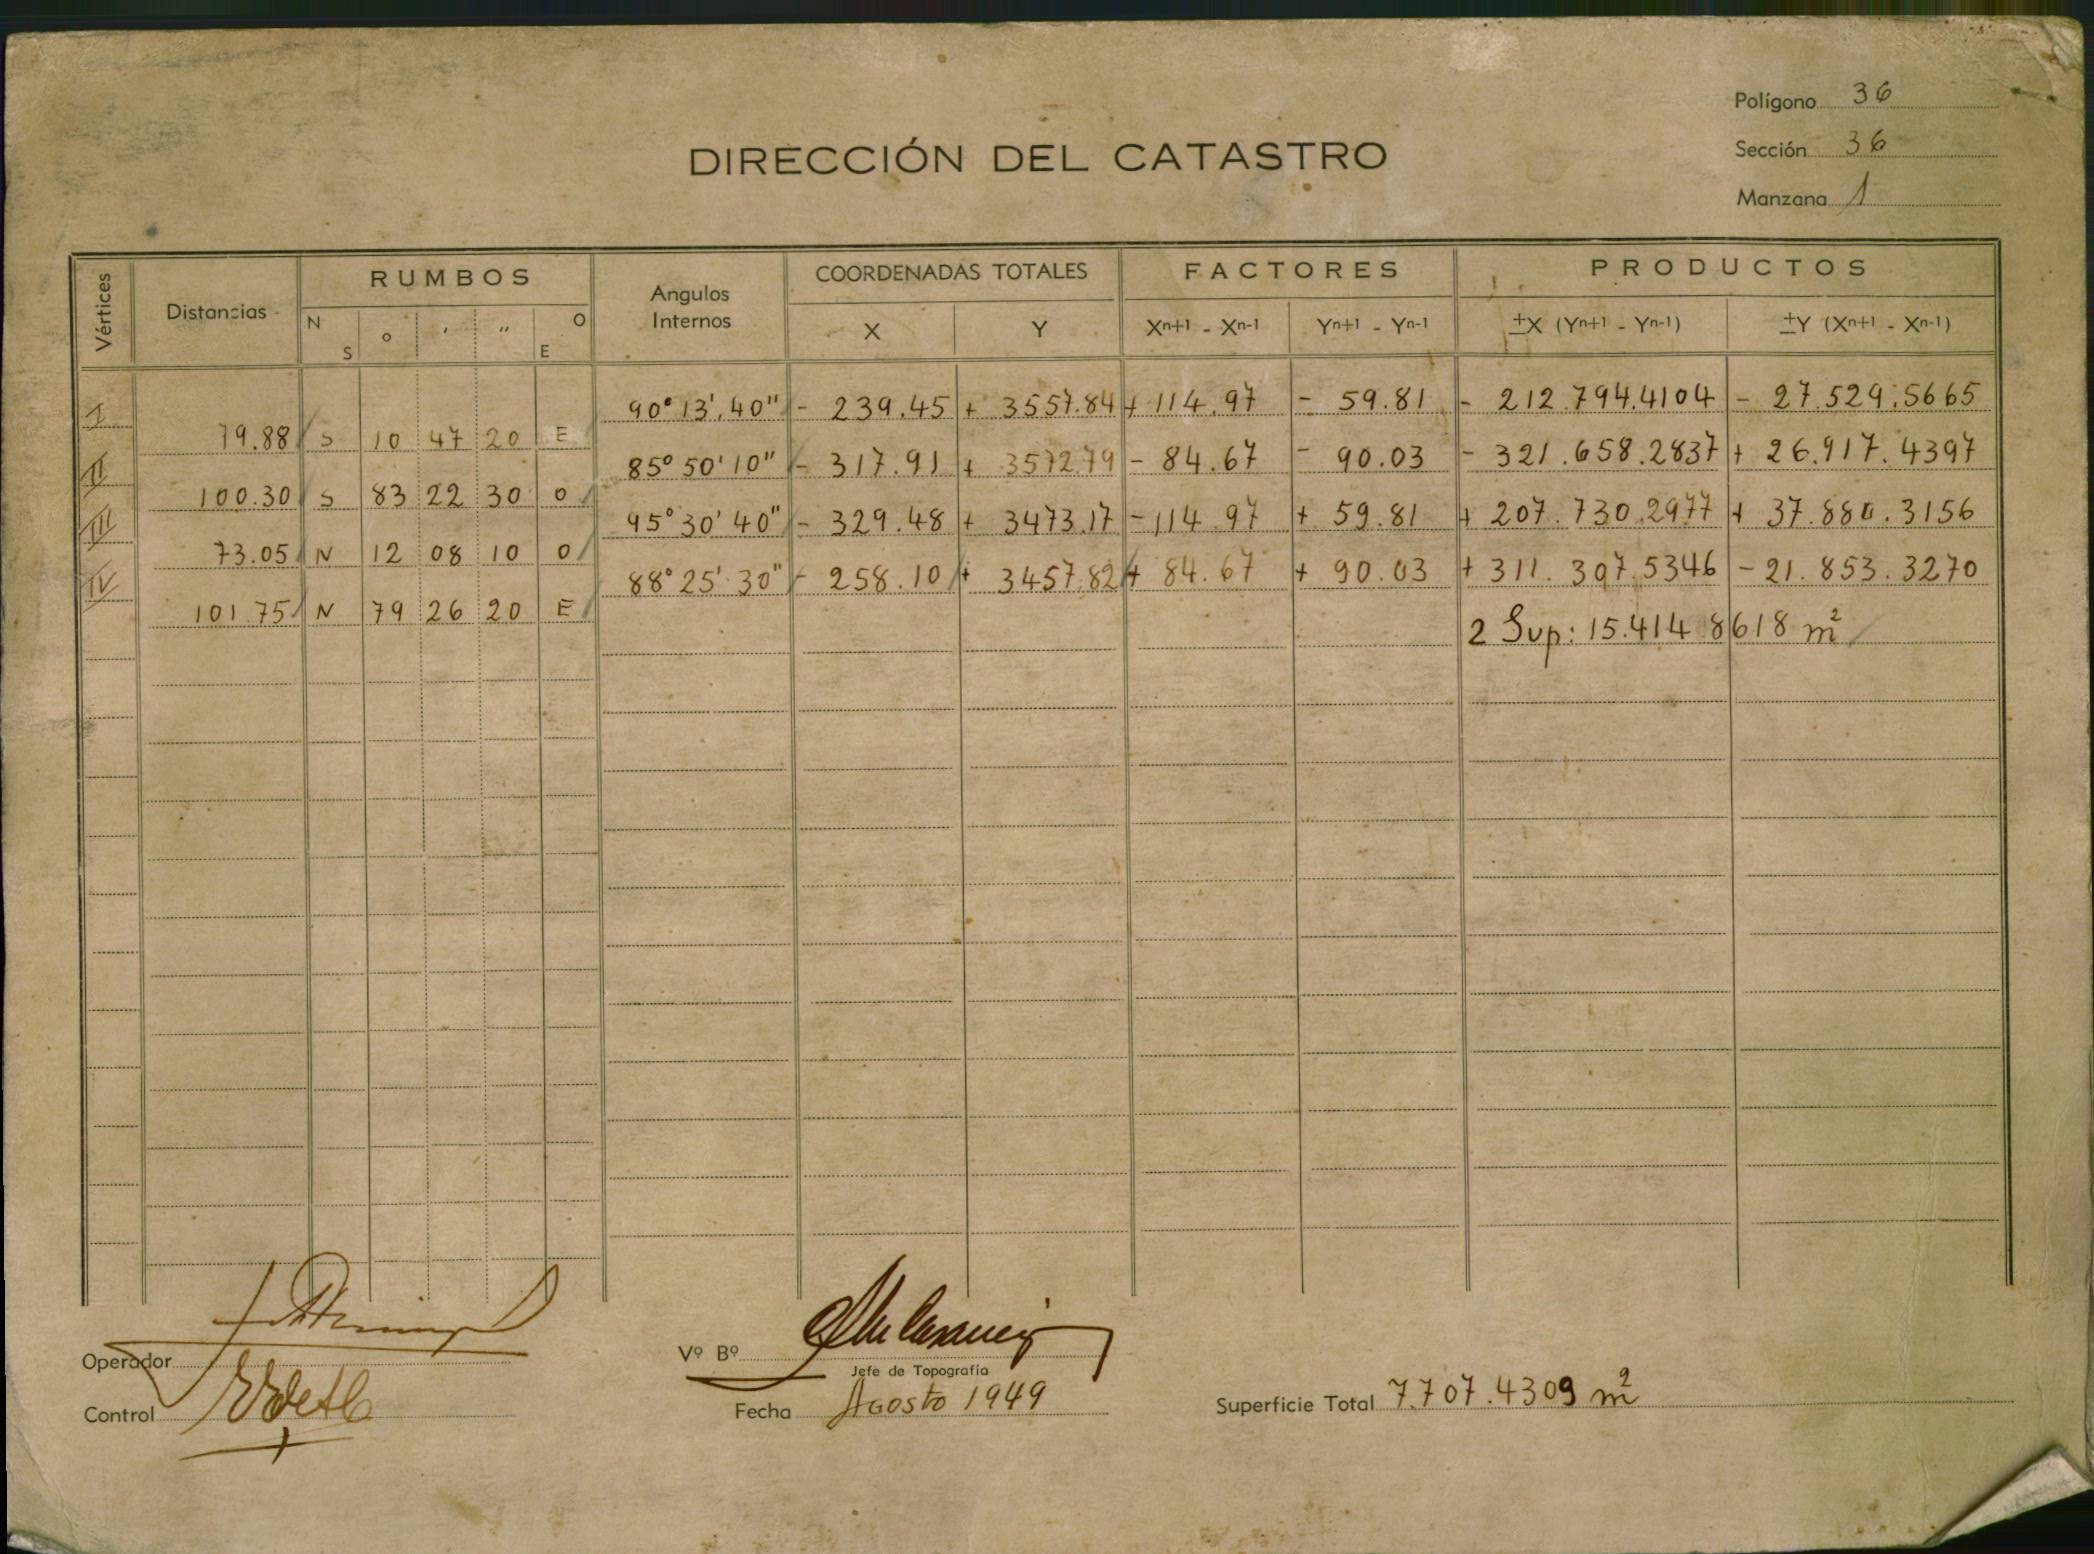 Polígono 36
Sección 36
Manzana 1
DIRECCIÓN DEL CATASTRO
Vértices Distancias RUMBOS Angulos Internos COORDENADAS TOTALES FACTORES PRODUCTOS
N S o ' " O E X Y Xn+1 - Xn-1 Yn+1 - Yn-1 ±X (Yn+1 - Yn-1) ±Y (Xn+1 - Xn-1)
I 90° 13'.40" - 239.45 + 3557.84 + 114.97 - 59.81 - 212.794.4104 - 27.529.5665
79.88 S 10 47 20 E
II 85° 50' 10" - 317.91 + 3572.79 - 84.67 - 90.03 - 321.658.2837 + 26.917.4397
100.30 S 83 22 30 O
III 95° 30' 40" - 329.48 + 3473.17 - 114.97 + 59.81 + 207.730.2977 + 37.880.3156
73.05 N 12 08 10 O
IV 88° 25' 30" - 258.10 + 3457.82 + 84.67 + 90.03 + 311.307.5346 - 21.853.3270
101.75 N 79 26 20 E
2 Sup: 15.414.8618 m²
Operador
Control
Vº Bº
Jefe de Topografía
Fecha Agosto 1949
Superficie Total 7.707.4309 m²